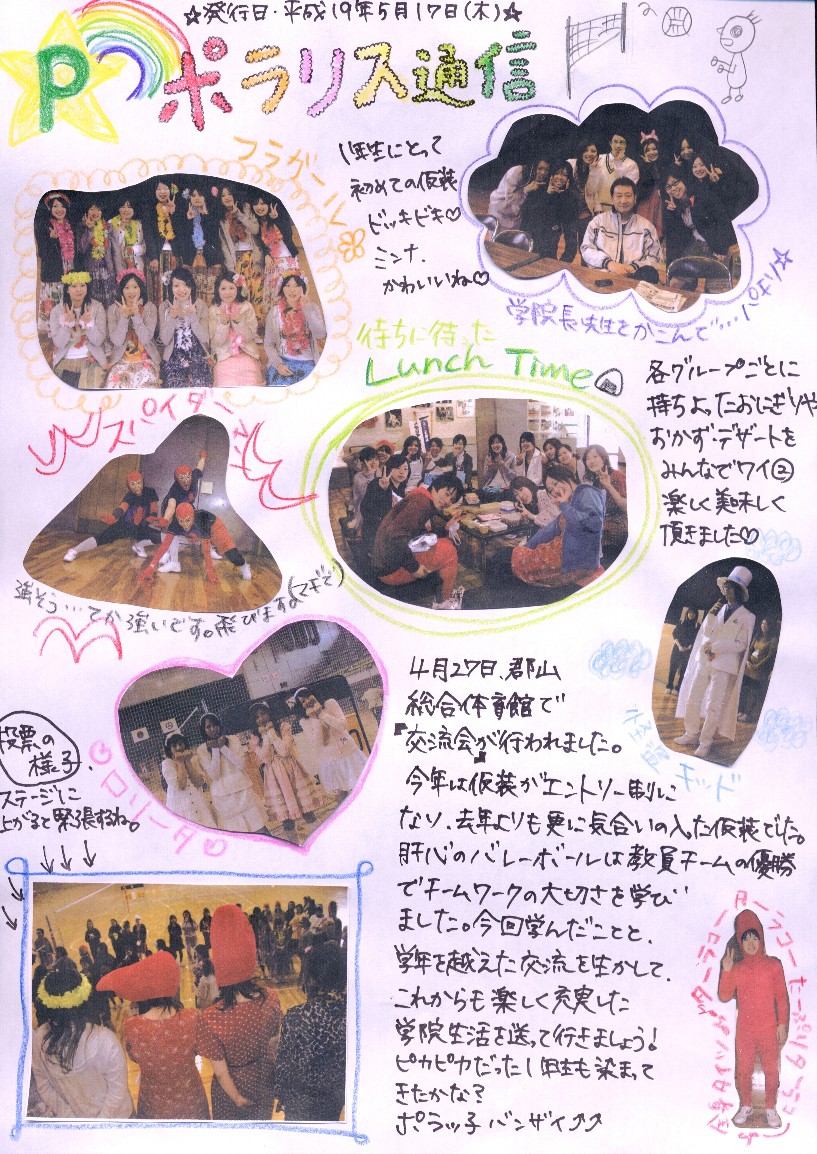 ☆発行日・平成19年5月17日(木)☆
P
ポラリス通信
フラガール
1年生にとって
初めての仮装
ドッキドキ♡
ミンナ、
かわいいね♡
学院長先生をかこんで…パチリ☆
待ちに待った
Lunch Time
各グループごとに
持ちよったおにぎりや
おかずデザートを
みんなでワイ②
楽しく美味しく
頂きました♡
スパイダーマン
強そう…てか強いです。飛びますよ(マギで)
ロリータ♡
怪盗キッド
投票の
様子、
ステージに
上がると緊張するね。
4月27日、郡山
総合体育館で
『交流会』が行われました。
今年は仮装がエントリー制に
なり、去年よりも更に気合いの入った仮装でした。
肝心のバレーボールは教員チームの優勝
でチームワークの大切さを学び
ました。今回学んだことと、
学年を越えた交流を生かして、
これからも楽しく充実した
学院生活を送って行きましょう!
ピカピカだった1年生も染まって
きたかな?
ポラッ子バンザイ⤴⤴
ターラコー